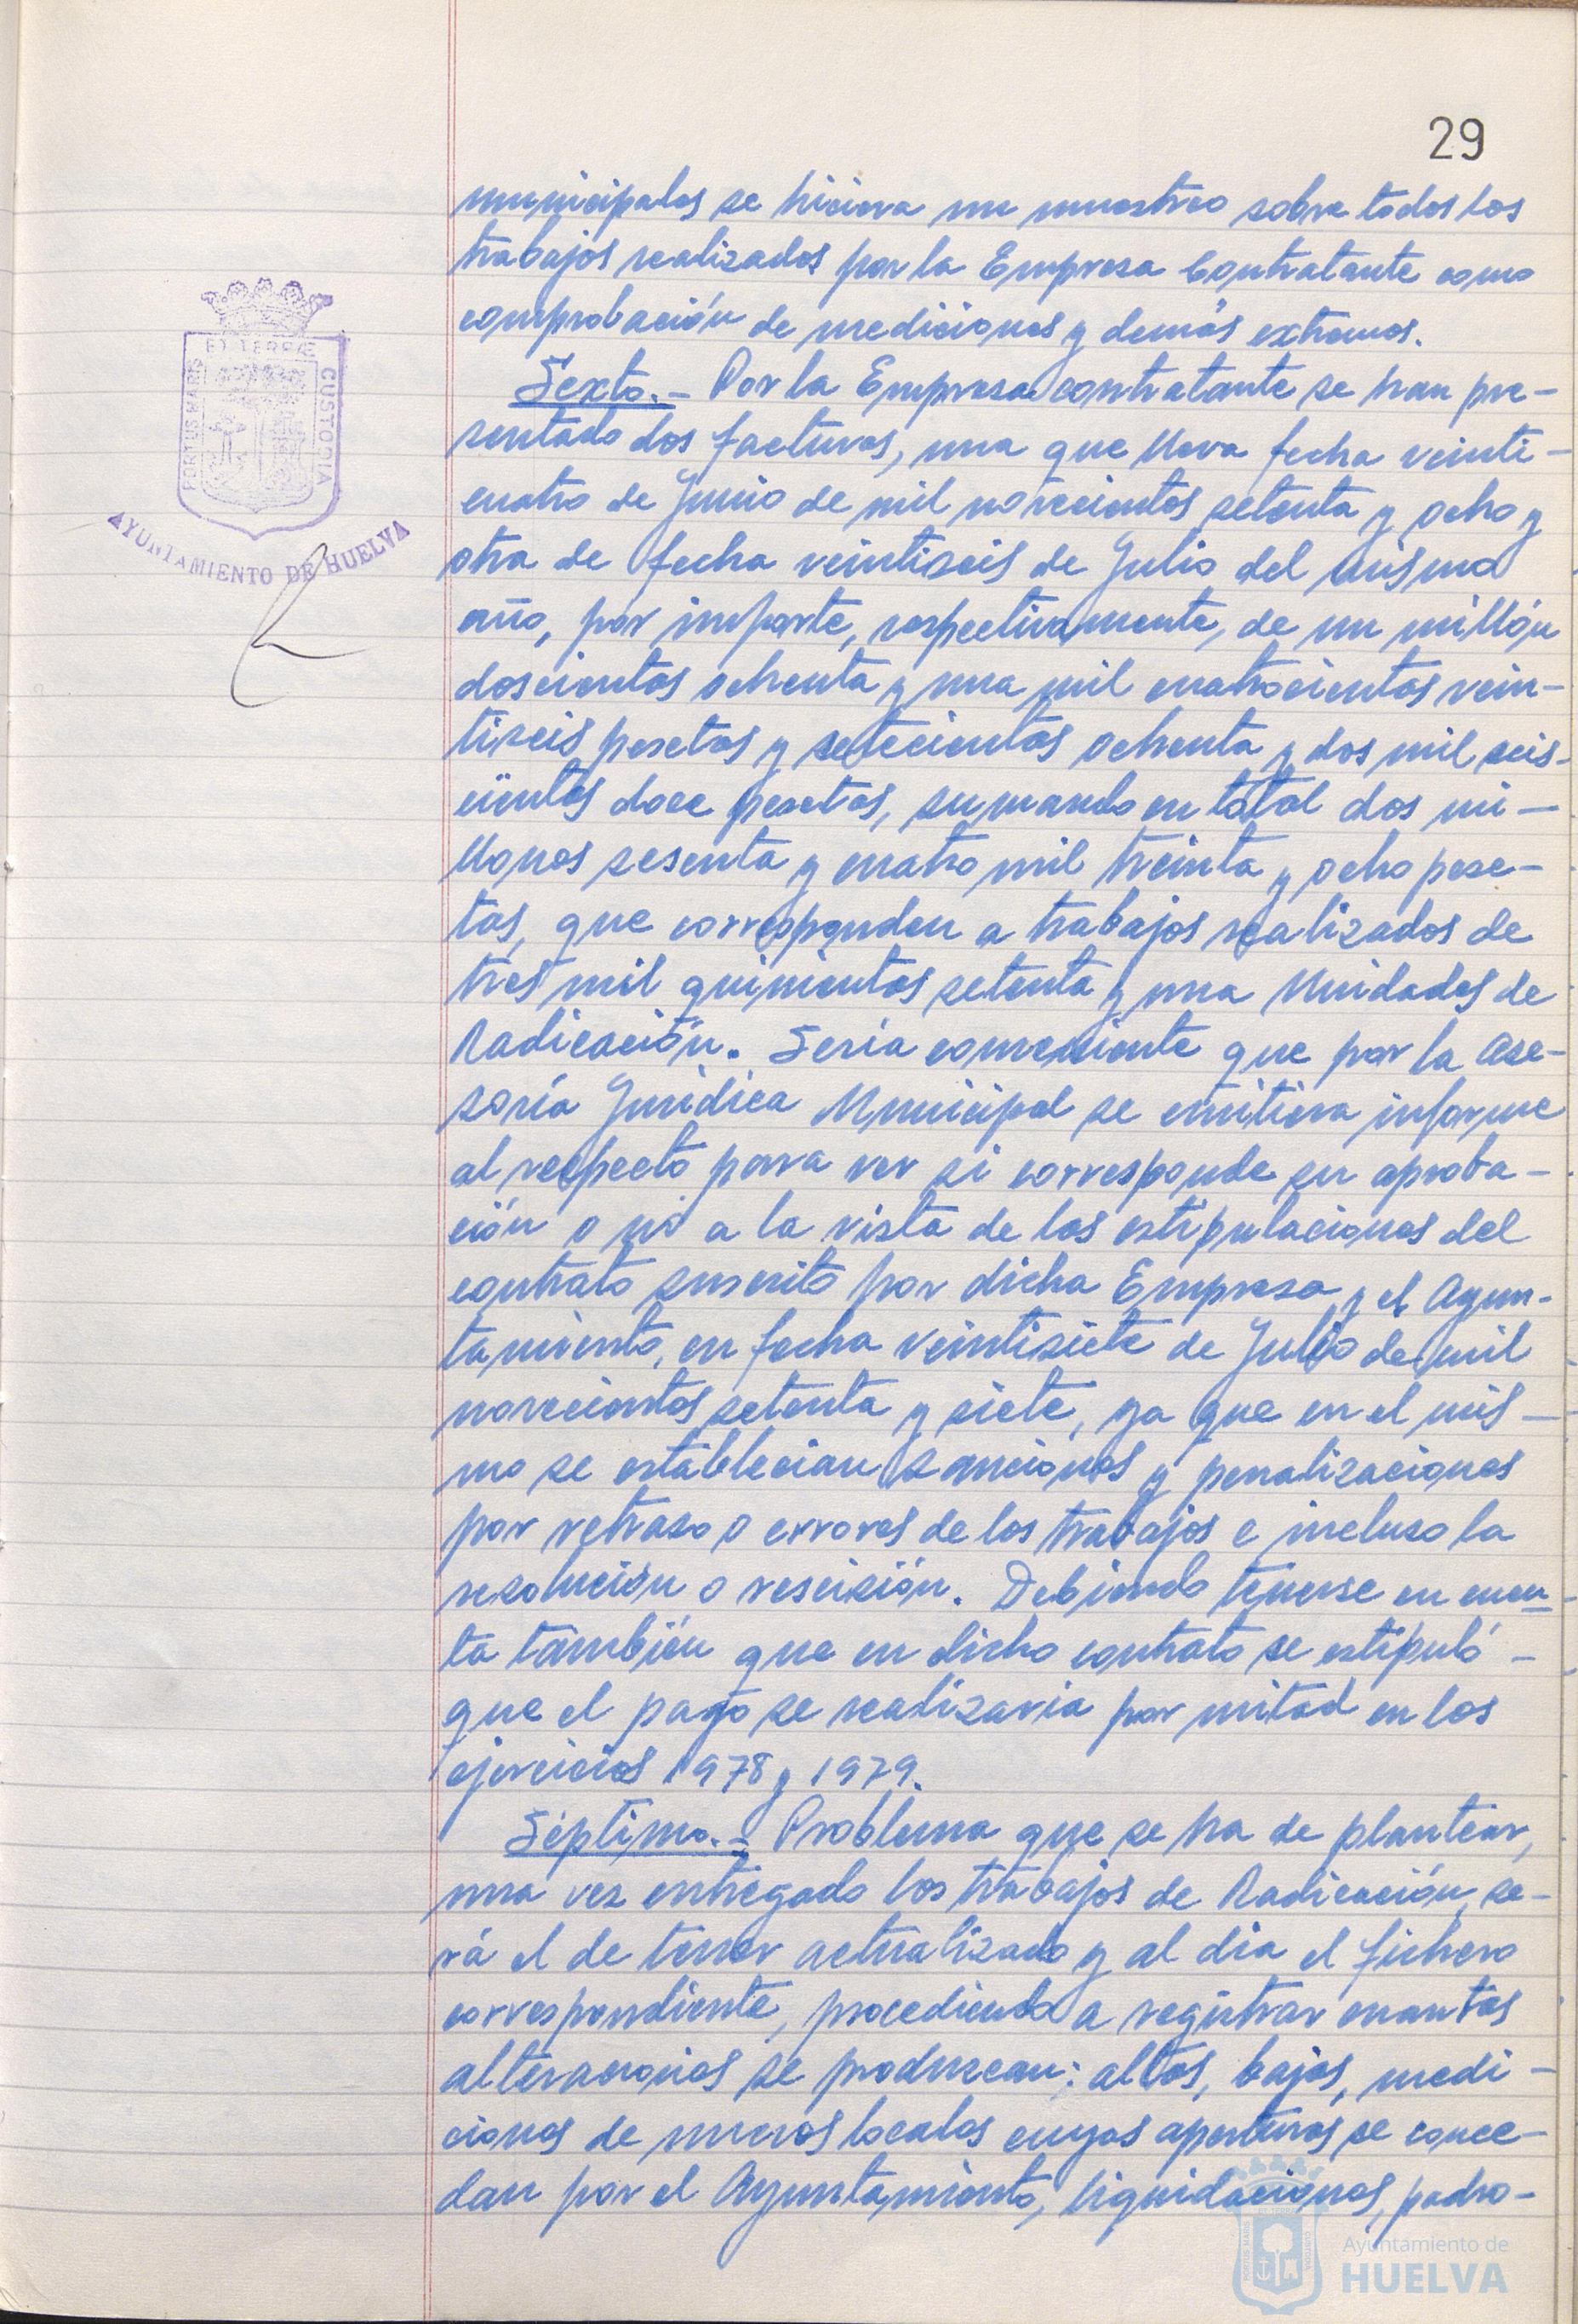 29
municipales se hiciera un muestreo sobre todos los
trabajos realizados por la Empresa Contratante como
comprobación de mediciones y demás extremos.
Sexto.- Por la Empresa contratante se han pre-
sentado dos facturas, una que lleva fecha veinti-
cuatro de Junio de mil novecientos setenta y ocho y
otra de fecha veintiseis de Julio del mismo
año, por importe, respectivamente, de un millón
doscientas ochenta y una mil cuatrocientas vein-
tiseis pesetas y setecientas ochenta y dos mil seis-
cientas doce pesetas, sumando en total dos mi-
llones sesenta y cuatro mil treinta y ocho pese-
tas, que corresponden a trabajos realizados de
tres mil quinientas setenta y una Unidades de
Radicación. Sería conveniente que por la Ase-
soría Jurídica Municipal se emitiera informe
al respecto para ver si corresponde su aproba-
ción o no a la vista de las estipulaciones del
contrato suscrito por dicha Empresa y el Ayun-
tamiento, en fecha veintisiete de Julio de mil
novecientos setenta y siete, ya que en el mis-
mo se establecian sanciones y penalizaciones
por retraso o errores de los trabajos e incluso la
resolución o rescisión. Debiendo tenerse en cuen-
ta también que en dicho contrato se estipuló -
que el pago se realizaria por mitad en los
ejercicios 1978 y 1979.
Séptimo.- Problema que se ha de plantear,
una vez entregado los trabajos de Radicación, se-
rá el de tener actualizado y al dia el fichero
correspondiente, procediendo a registrar cuantas
alteraciones se produzcan: altas, bajas, medi-
ciones de nuevos locales cuyas aperturas se conce-
dan por el Ayuntamiento, liquidaciones, padro-
PORTUS MARIS
ET TERRÆ
CUSTODIA
AYUNTAMIENTO DE HUELVA
Ayuntamiento de
HUELVA